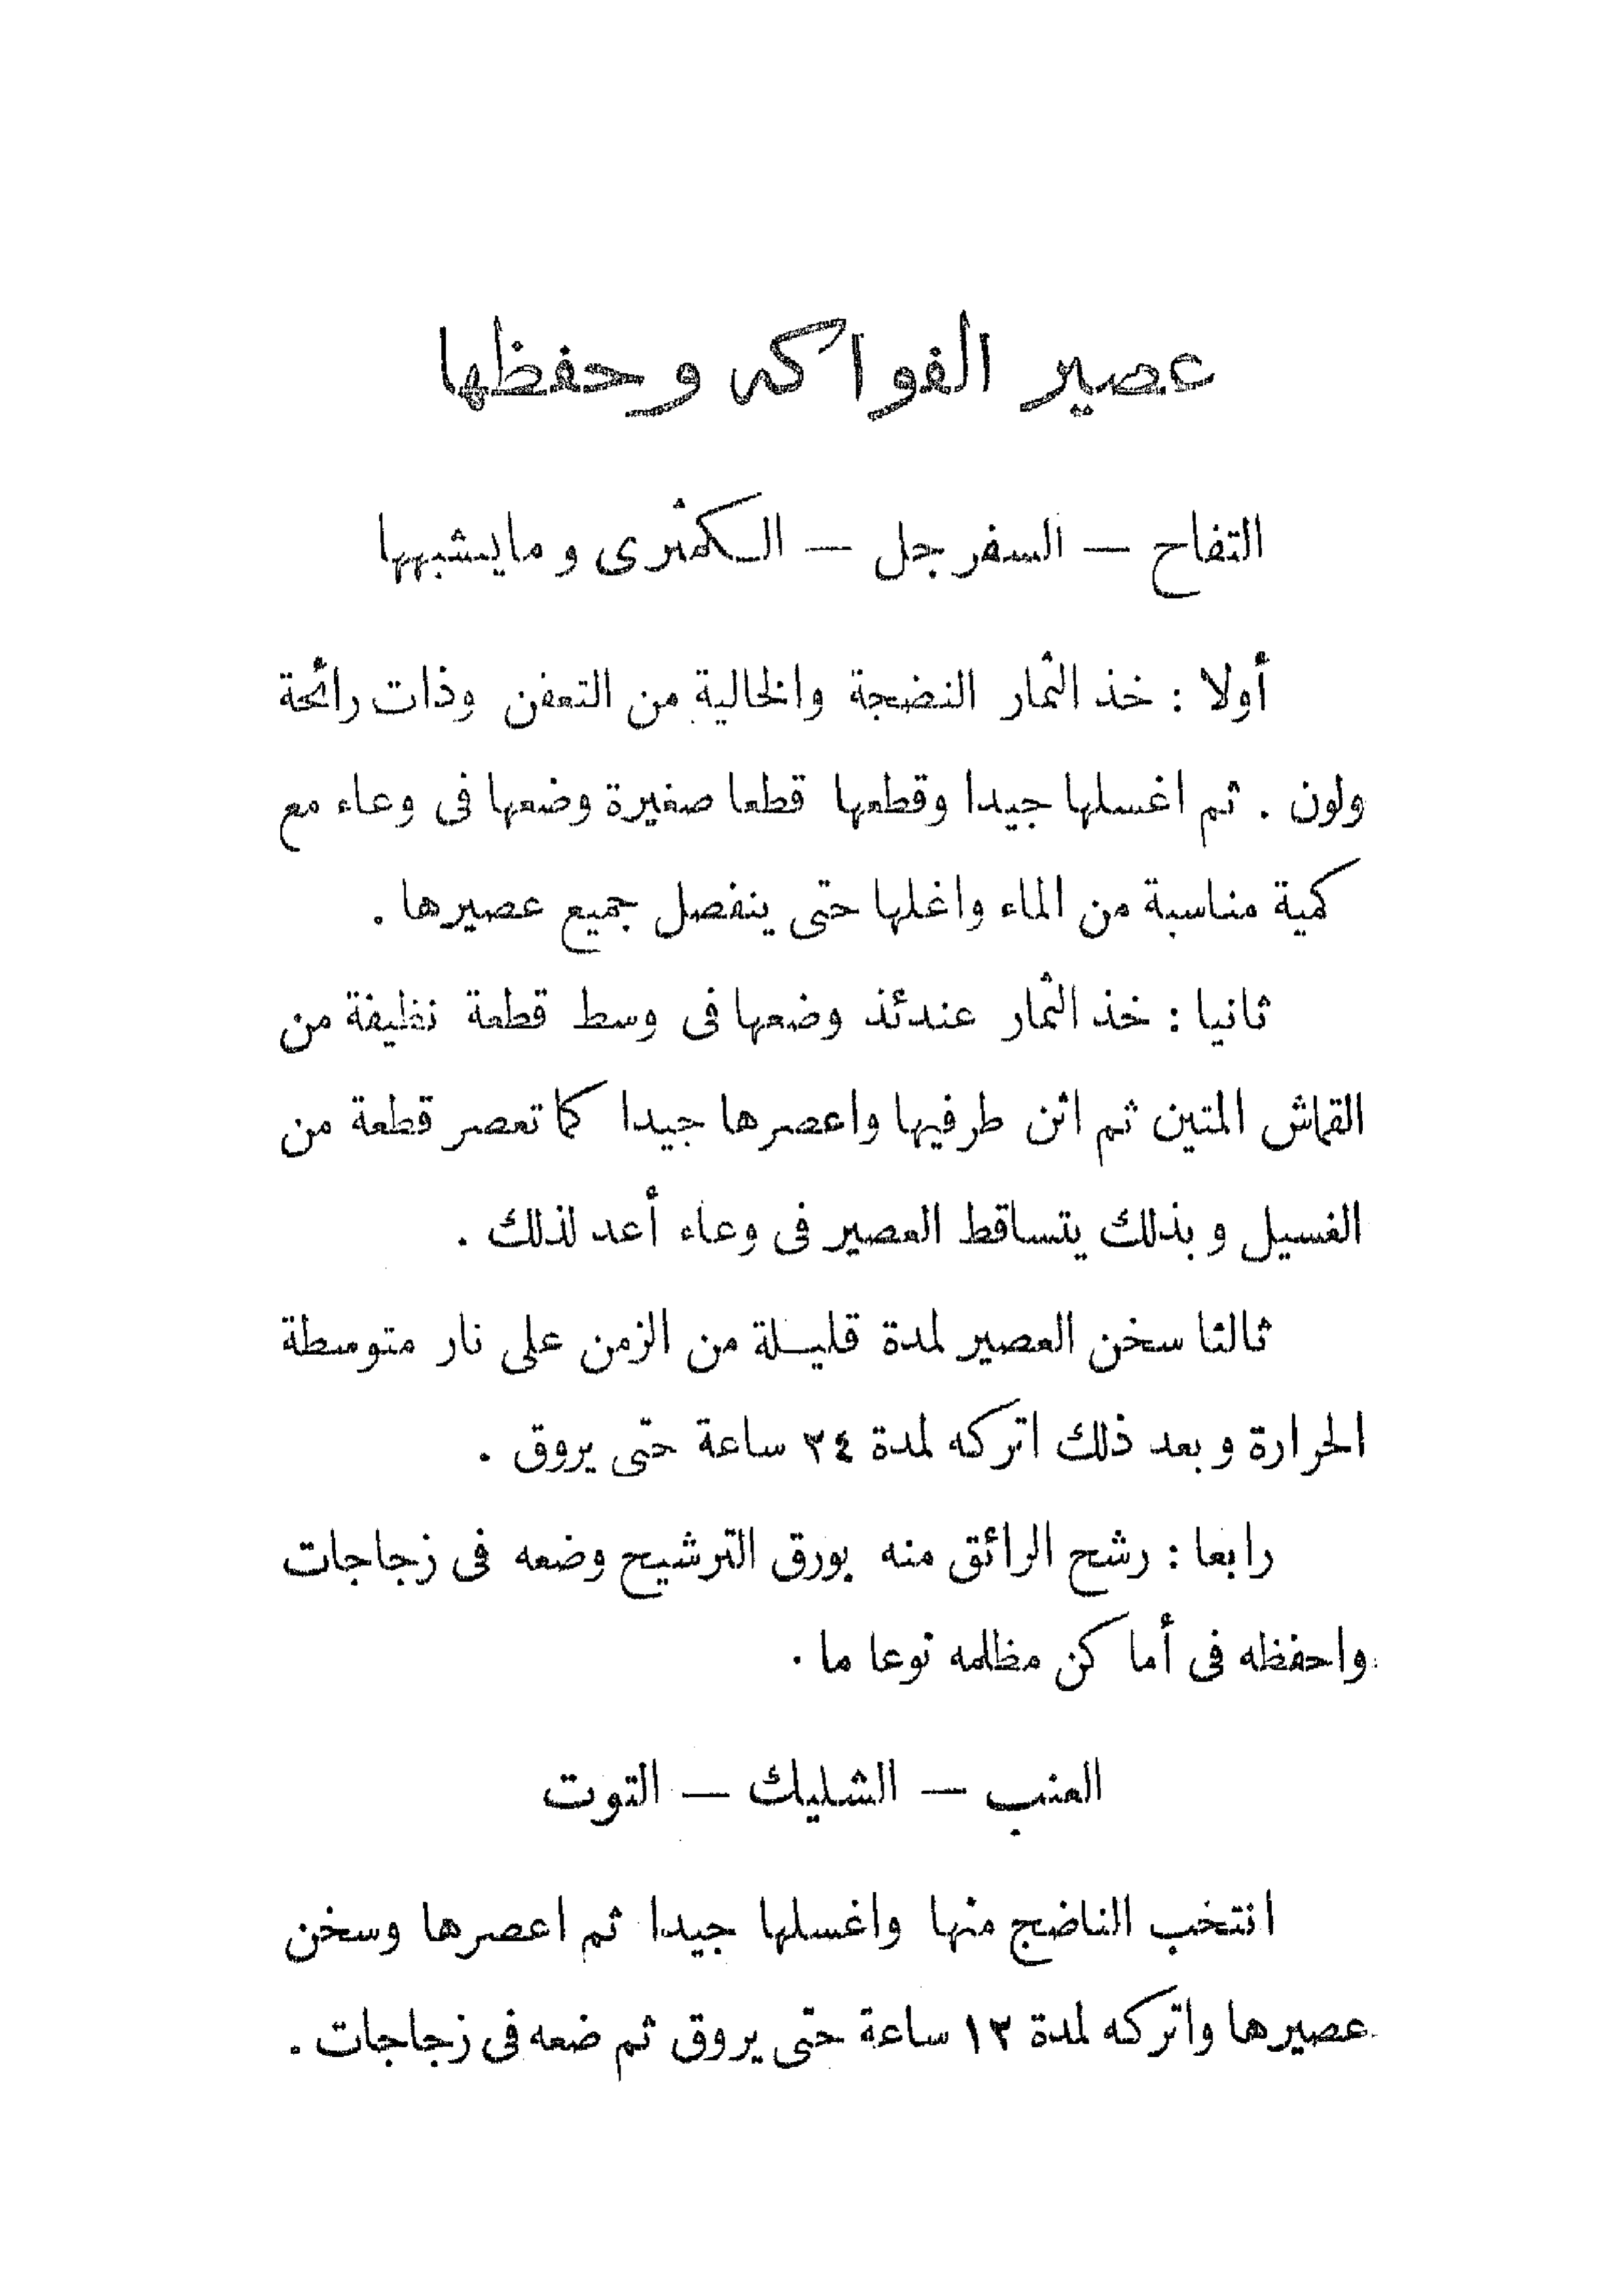 عصير الفواكه وحفظها
التفاح — السفرجل — الكمثرى وما يشبهها
أولا : خذ الثمار النضجة والخالية من التعفن وذات رائحة
ولون . ثم اغسلها جيدا وقطعها قطعا صغيرة وضعها فى وعاء مع
كمية مناسبة من الماء واغلها حتى ينفصل جميع عصيرها .
ثانيا : خذ الثمار عندئذ وضعها فى وسط قطعة نظيفة من
القماش المتين ثم اثن طرفيها واعصرها جيدا كما تعصر قطعة من
الغسيل وبذلك يتساقط العصير فى وعاء أعد لذلك .
ثالثا سخن العصير لمدة قليلة من الزمن على نار متوسطة
الحرارة وبعد ذلك اتركه لمدة ٢٤ ساعة حتى يروق .
رابعا : رشح الرائق منه بورق الترشيح وضعه فى زجاجات
واحفظه فى أماكن مظلمه نوعا ما .
العنب — الشليك — التوت
انتخب الناضج منها واغسلها جيدا ثم اعصرها وسخن
عصيرها واتركه لمدة ١٢ ساعة حتى يروق ثم ضعه فى زجاجات .